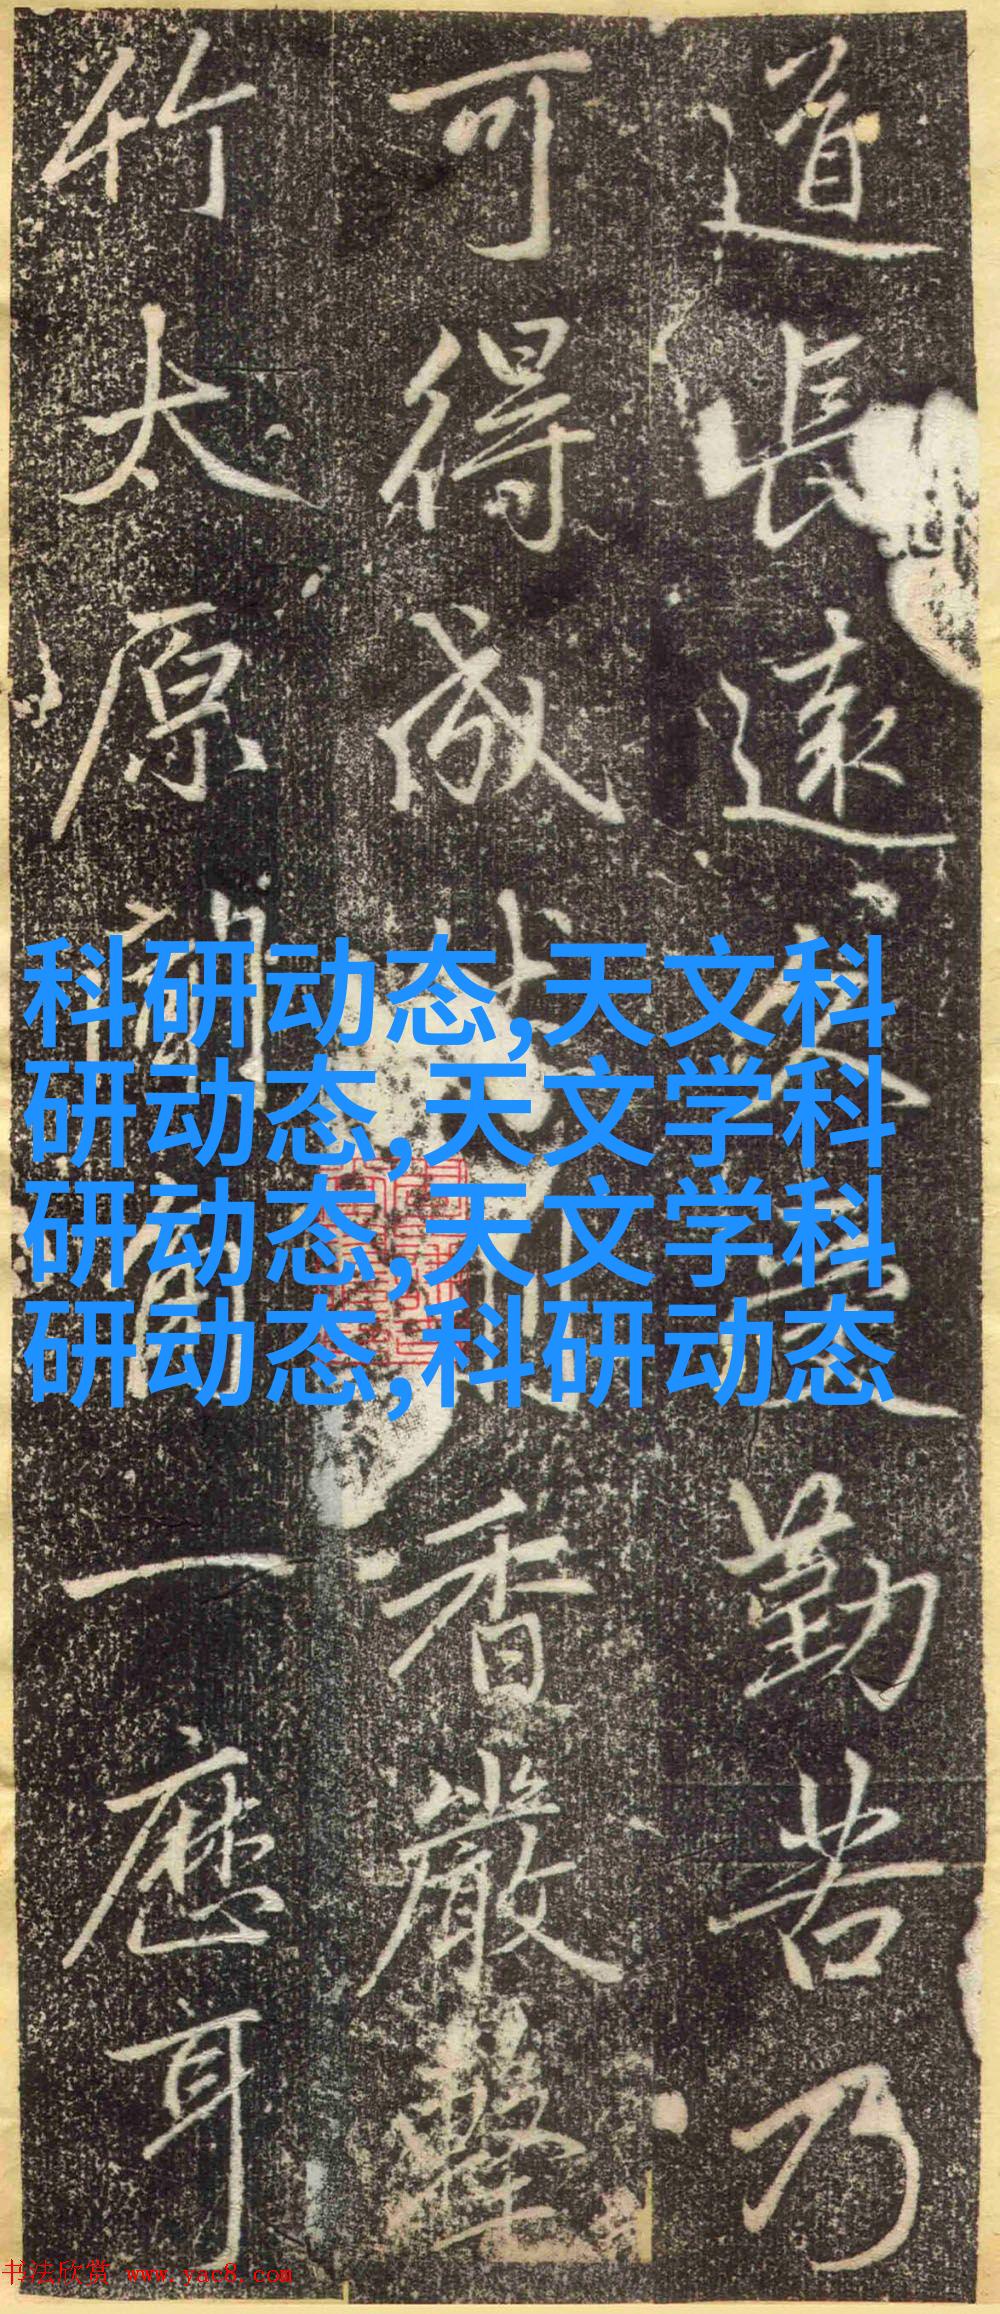 道長遠久受勤苦乃
可得成香嚴擊
竹太原聞角一應耳
科研动态,天文科
研动态,天文学科
研动态,天文学科
研动态,科研动态
书法欣赏 www.yac8.com